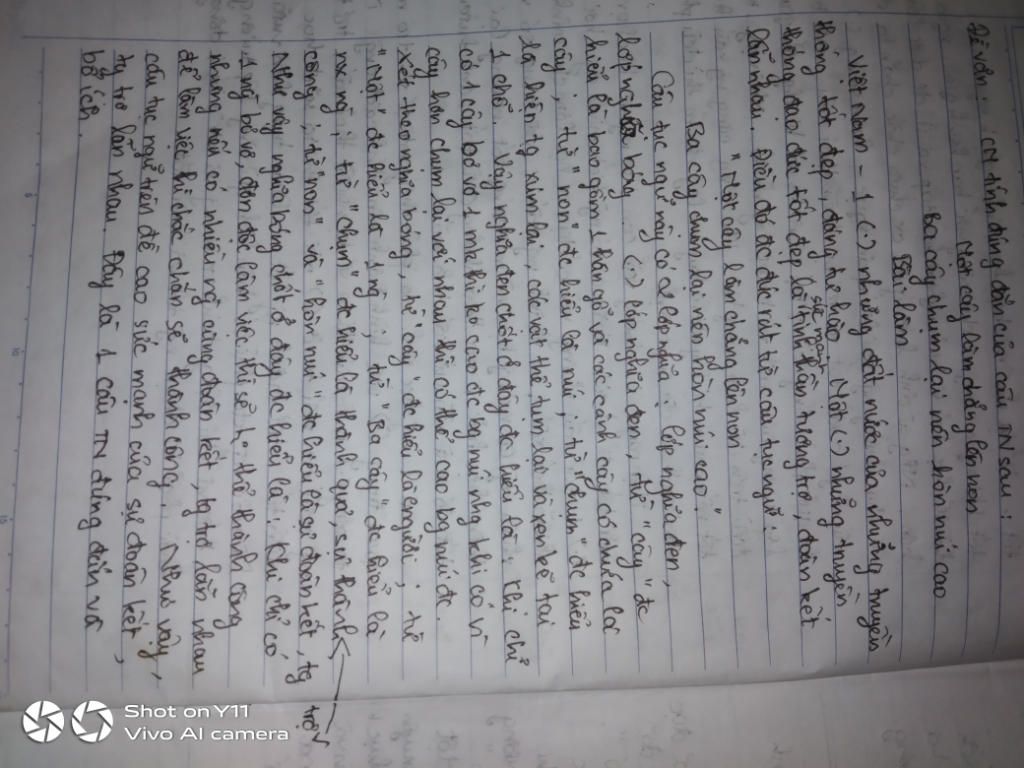 Đề văn: CN tính đúng đắn của câu TN sau:
Một cây làm chẳng lên non
Ba cây chụm lại nên hòn núi cao
Bài làm
Việt Nam - 1 (-) những đất nước của những truyền
thống tốt đẹp, đáng tự hào. Một (-) những truyền
thống đạo đức tốt đẹp là tinh thần tương trợ, đoàn kết
sức mạnh
lẫn nhau. Điều đó đc đúc rút từ câu tục ngữ:
"Một cây làm chẳng lên non
Ba cây chụm lại nên hòn núi cao"
Câu tục ngữ này có 2 lớp nghĩa: lớp nghĩa đen,
lớp nghĩa bóng. (-) lớp nghĩa đen, từ "cây" đc
hiểu là bao gồm 1 thân gỗ và các cành cây có chứa lá
cây, từ "non" đc hiểu là núi; từ "chụm" đc hiểu
là hiện tg túm lại, các vật thể tụm lại và xen kẽ tại
1 chỗ. Vậy nghĩa đen chốt ở đây đc hiểu là: Khi chỉ
có 1 cây bơ vơ 1 mk thì ko cao đc bg núi nhg khi có
cây hơn chụm lại với nhau thì có thể cao bg núi đc.
Xét theo nghĩa bóng, từ "cây" đc hiểu là con người; từ
"Một" đc hiểu là 1 ng; từ "Ba cây" đc hiểu là
ng; từ "chụm" đc hiểu là thành quả, sự thành
công; từ "non" và "hòn núi" đc hiểu là sự đoàn kết, tg
trợ
Như vậy nghĩa bóng chốt ở đây đc hiểu là: Khi chỉ có
1 ng bơ vơ, đơn độc làm việc thì sẽ ko thể thành công
nhưng nếu có nhiều ng cùng đoàn kết, tg trợ lẫn nhau
để làm việc thì chắc chắn sẽ thành công. Như vậy,
câu tục ngữ trên đề cao sức mạnh của sự đoàn kết,
tg trợ lẫn nhau. Đây là 1 câu TN đúng đắn và
bổ ích.
Shot on Y11
Vivo AI camera